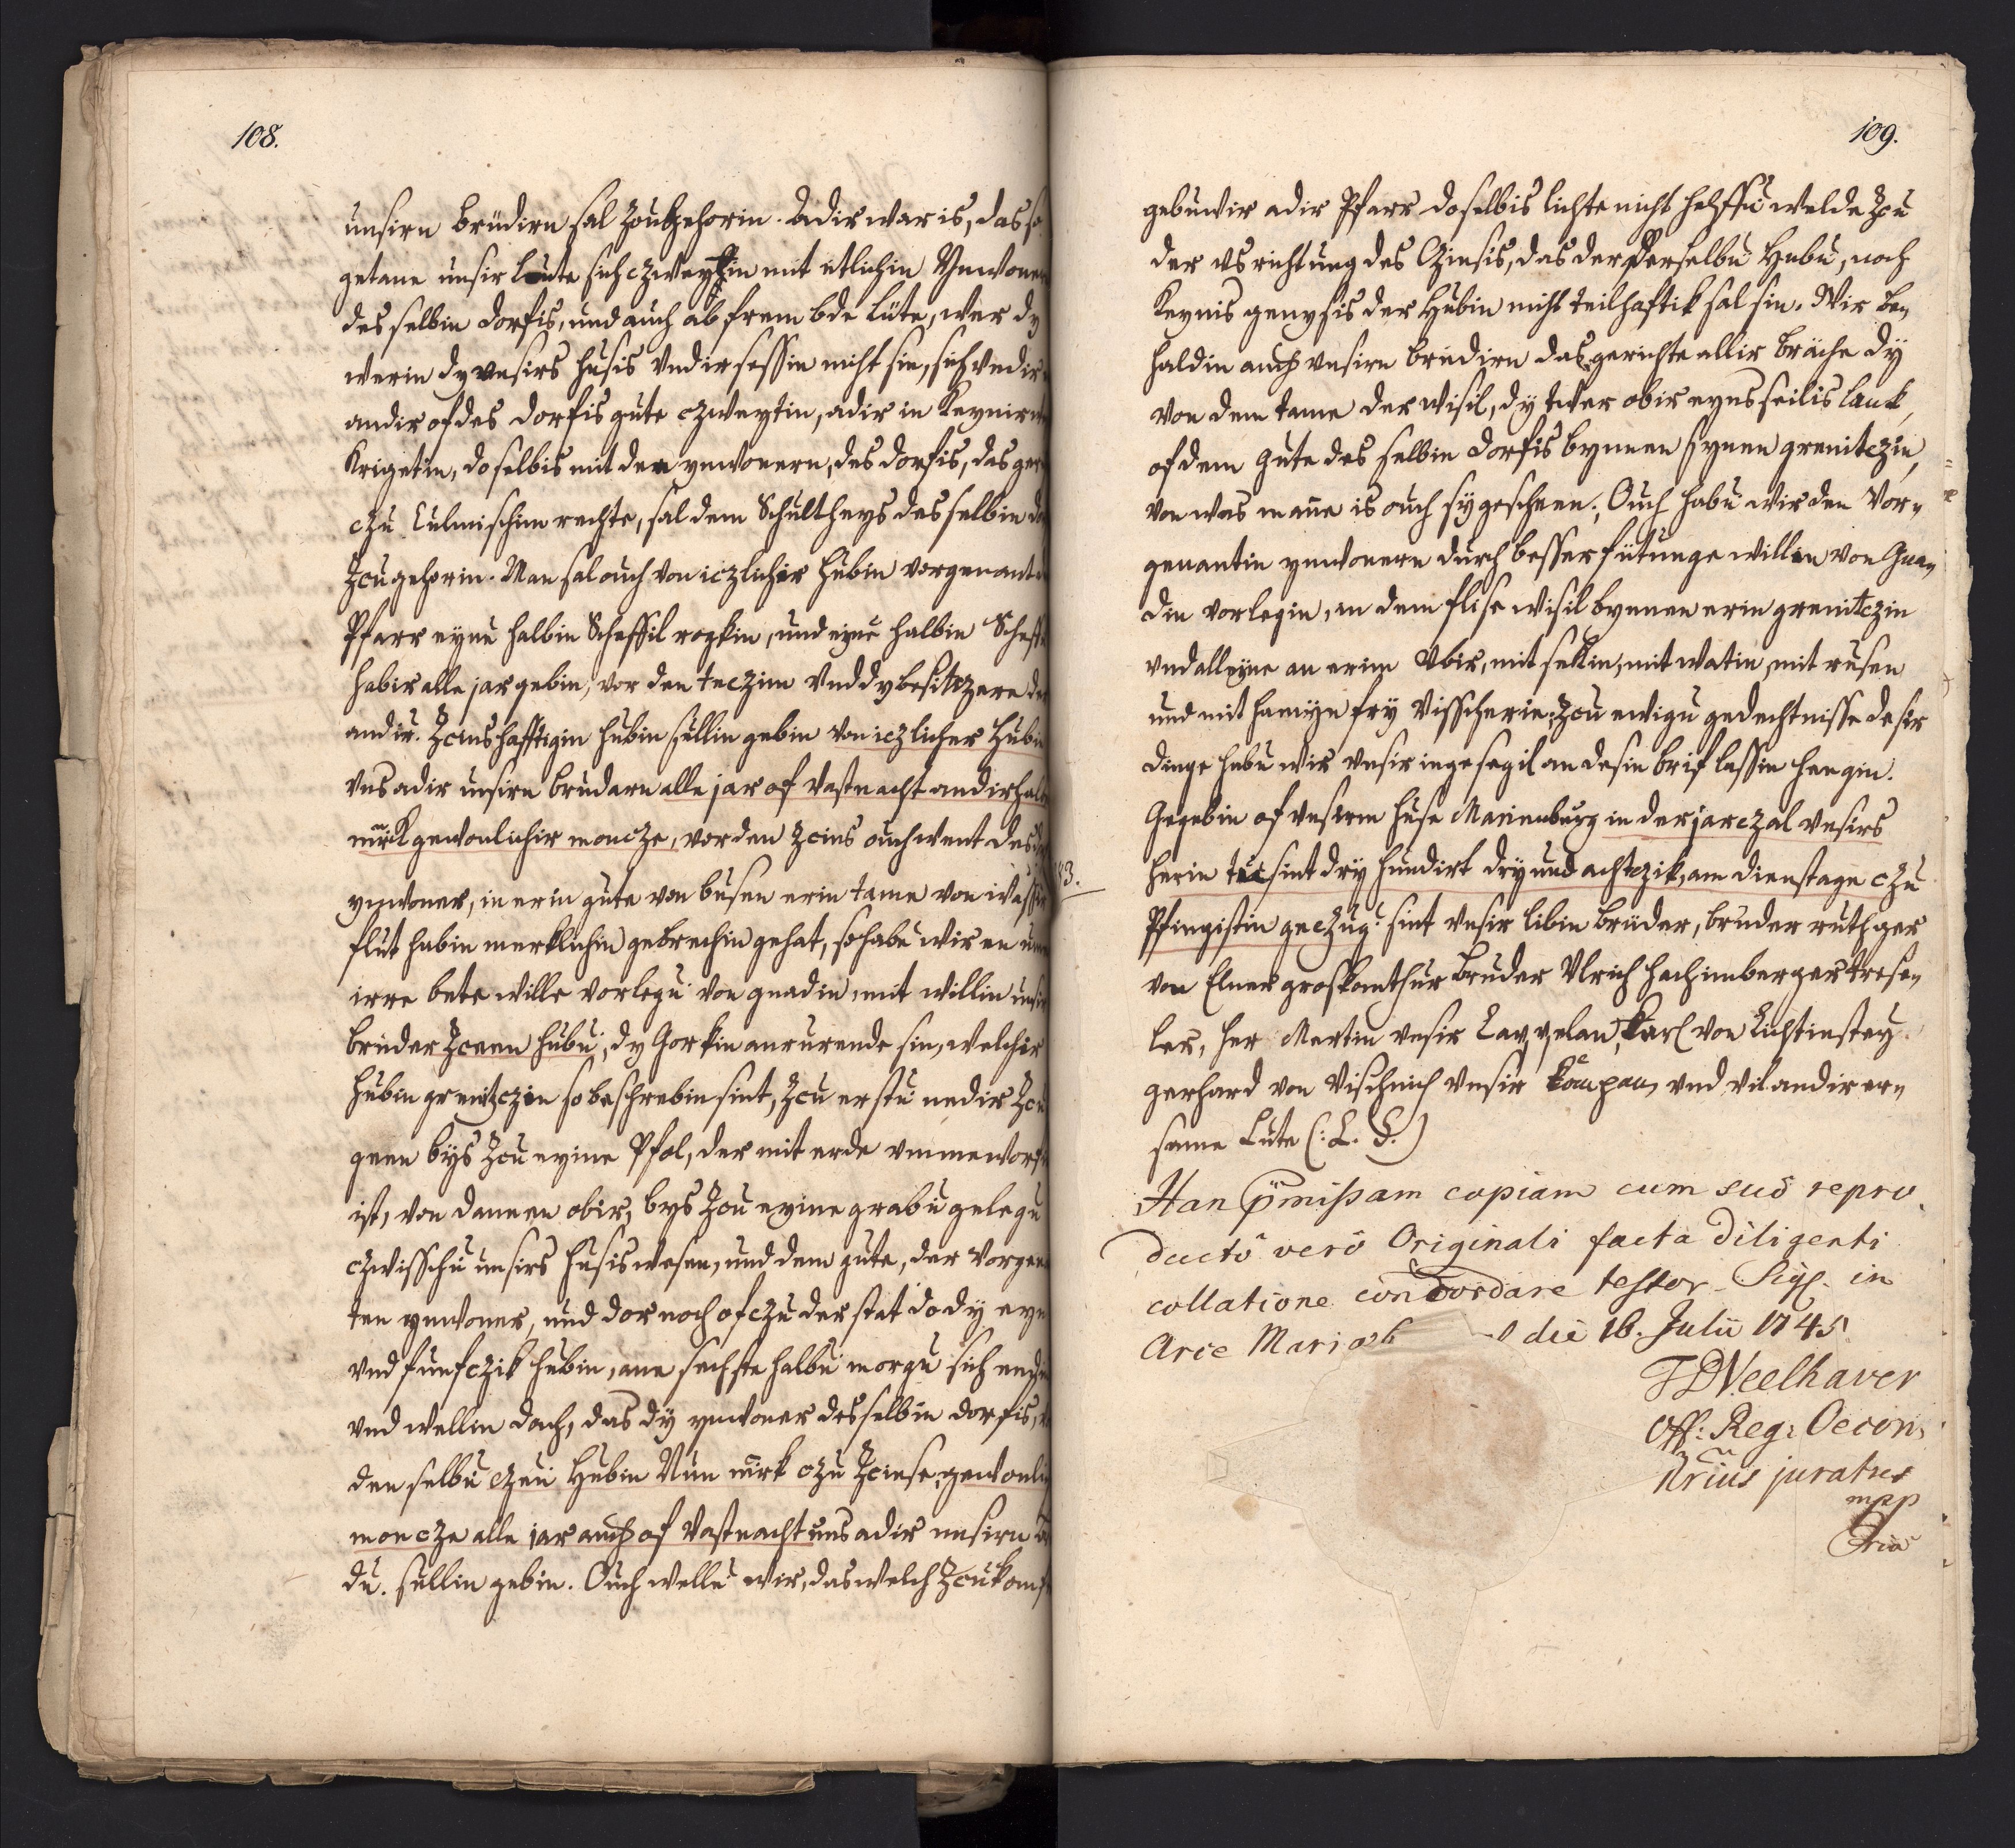 108.
unsirn brudirn sal zcugehorin. Adir war is, das so
getane unsir lute sich czweytin mit etlichin Ynwoner
des selbin dorfis, und auch ab frembde lüte, wer dy
werin dy vnsirs husis vndirsessin nicht sin, sich vndir
andir of des dorfis gute czweytin, adir in keynir
krigetin, do selbis mit den ynwonern, des dorfis, das ger
czu Culmischim rechte, sal dem Schultheys des selbin do
zcugehorin. Man sal ouch von iczlichir hubin vorgenant
Pfarr eynē halbin Scheffil rogkin, und eynē halbin Scheff
habir alle jar gebin, vor den teczim vnd dy besitczere der
andir. Zcinshafftigin hubin sullin gebin von iczlicher Hubin
vns adir unsirn brudern alle jar of vastnacht andirhalb
mrk gewonlichir moncze, vor den zcins ouch went des
ynwoner, in erin gute von busen erin tame von wassir
flut habin merklichin gebrechin gehat, so habē wir en um
irre bete wille vorlegē von gnadin, mit willin unsir
bruder zceen hubē, dy Gorkin anrurende sin, welchir
hubin grenitczin so beschrebin sint, zcu erstē nedir zcu
geen bys zcu eyme Pfol, der mit erde vmmeworfin
ist, von dannen obir, bys zcu eyme grabē gelegē
czwisschē unsirs husis wesen, und dem gute, der vorgen
ten ynwoner, und dor noch of czu der stat do dy eyn
vnd funfczik hubin, ane sechste halbē morgē sich end
vnd wellin doch, das dy ynwoner des selbin dorfis,
den selbē czen Hubin Nun mrk czu zcinse, gewonlich
moncze alle jar auch of vastnacht uns adir unsirn br
du. sullin gebin. Ouch wellē wir, das welch zcukomf
109.
gebuwir adir Pfarr doselbis lichte nicht helffē welde zcu
der vsrichtung des Czinsis, das der derselbē Hubē, noch
keynis genysis der hubin nicht teilhaftik sal sin. Wir be=
haldin auch vnsirn brudirn das gerichte allir bruche dy
von dem tame der wisil, dy twer obir eyns seilis lank,
of dem gute des selbin dorfis bynnen synen grenitczin,
von was mane is ouch sy gescheen; Ouch habē wir den vor=
genantin ynwonern durch besser fütunge willen von Gna=
din vorlegin, in dem flise wisil bynnen erin grenitczin
vnd alleyne an erim vbir, mit seckin, mit watin, mit rusen
und mit hamyn fry visscherie; zcu ewigē gedechtnisse desir
dinge habē wir vnsir ingesegil an desin brif lassin hengin.
Gegebin of vnsirm huse Marienburg in der jarczal vnsirs
83.
herin tusint dry hundirt dry und achtczik, am dienstage czu
Pfingistin geczug: sint vnsir libin brüder, bruder ruthger
von Elner groskomthur bruder Vlrich hachinberger trese=
ler, her Mertin vnsir Cappelan, Karl von Lichtinsteyn
gerhard von Vischnich vnsir kompan, vnd vil andir er=
same lute (: L. S.)
Han p̄missam copiam cum suo repro=
ducto vero Originali facta diligenti
collatione concordare testor. Sig. in
Arce Mariæb die 16. Julii 1745
FDNeelhaver
Off: Reg: Oecon:
Nrius juratus
mpp